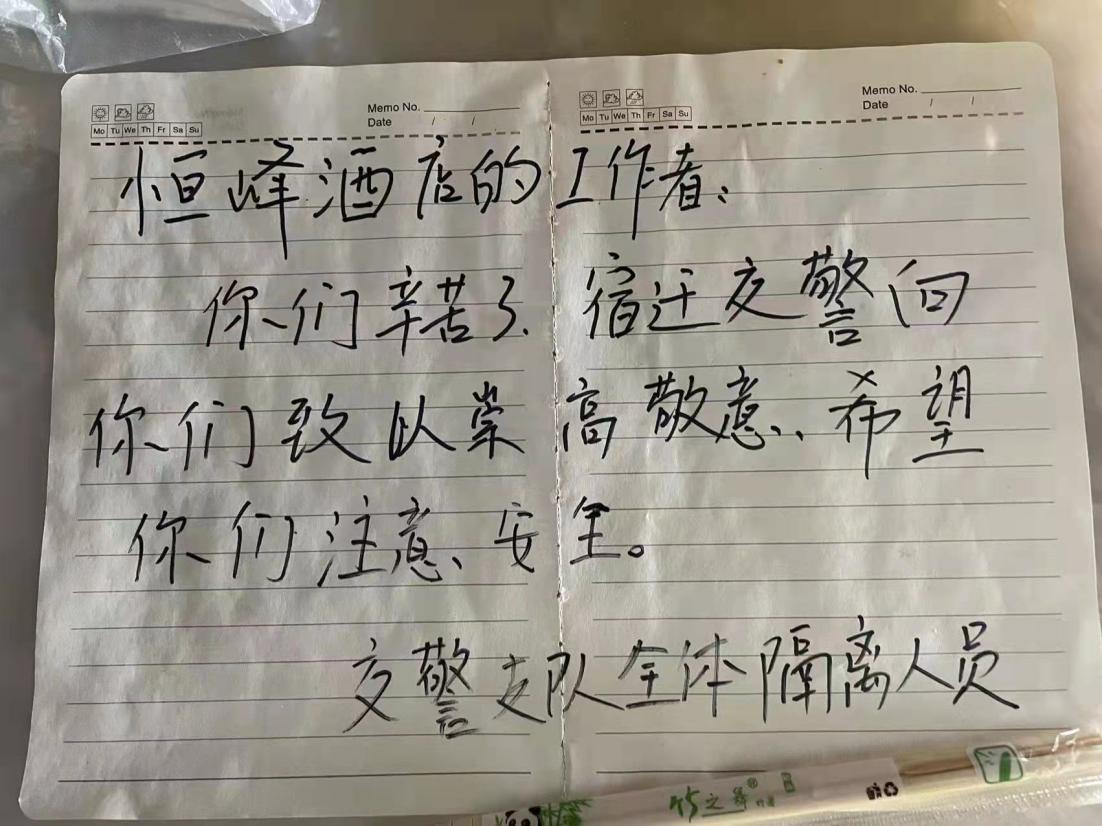 Memo No.
Date / /
Mo Tu We Th Fr Sa Su
Memo No.
Date / /
Mo Tu We Th Fr Sa Su
恒峰酒店的工作者：
你们辛苦了、宿迁交警向
你们致以崇高敬意、希望
你们注意、安全。
交警支队全体隔离人员
竹之